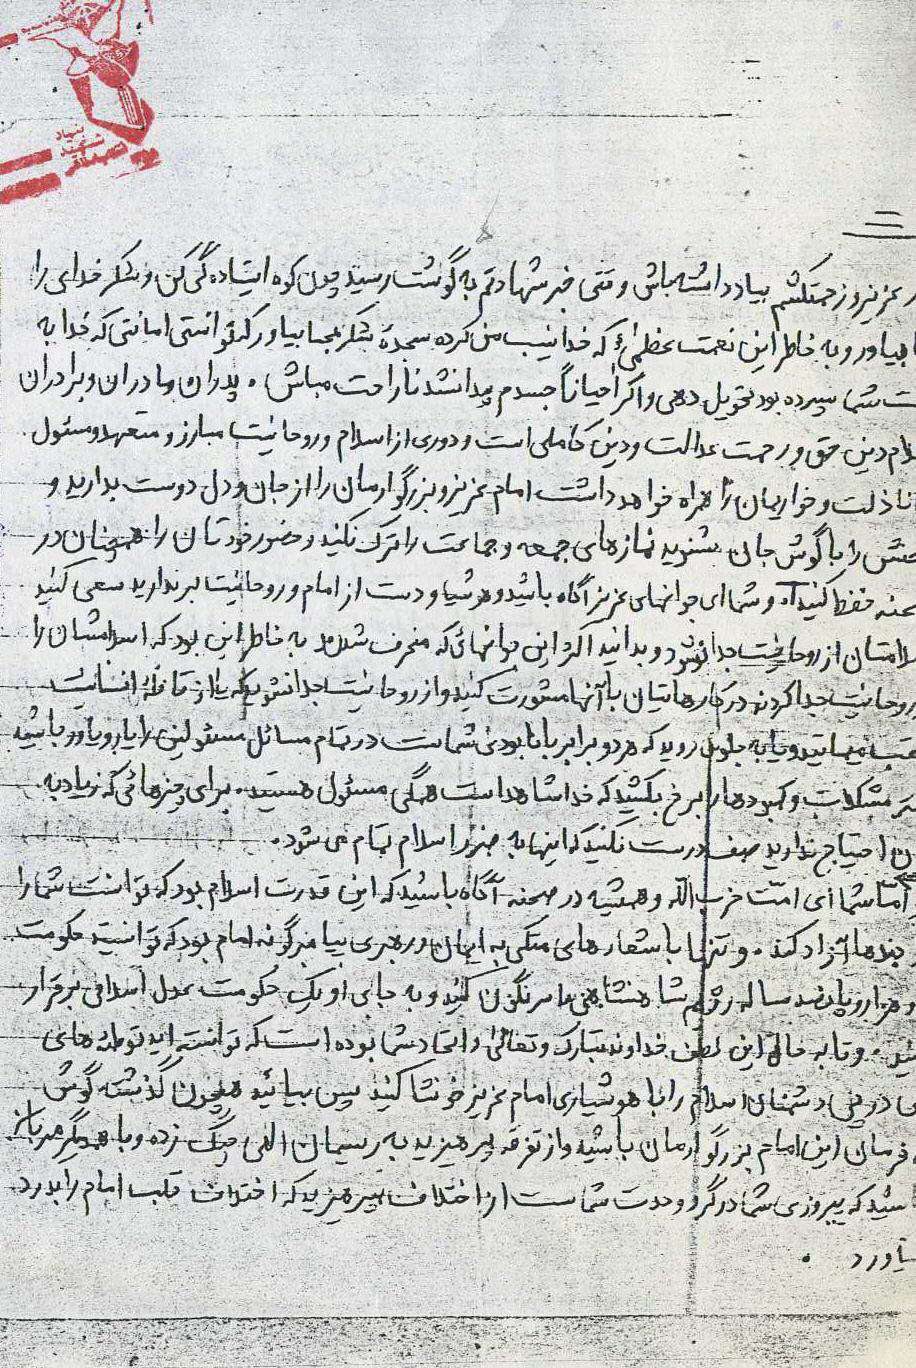 بنیاد
شهید
عزیز و زحمتکشم بیاد داشته باش وقتی خبر شهادتم به گوشت رسید چون کوه ایستاده گی کن و شکر خدای را
بیاور و به خاطر این نعمت عظمیٰ که خدا نصیب من کرده سجدهٔ شکر بجا بیاور که توانستی امانتی که خدا به
شما سپرده بود تحویل دهی و اگر احیاناً جسدم پیدا نشد ناراحت مباش . پدران و مادران و برادران
دین حق و رحمت عدالت و دین کاملی است و دوری از اسلام و روحانیت مبارز و متعهد و مسئول
ذلت و خواریمان را همراه خواهد داشت امام عزیز و بزرگوارمان را از جان و دل دوست بدارید و
را با گوش جان بشنوید نمازهای جمعه و جماعت را ترک نکنید و حضور خودتان را همچنان در
حفظ کنید و شما ای جوانهای عزیز آگاه باشید و هوشیار و دست از امام و روحانیت برندارید سعی کنید
از روحانیت جدا نشود و بدانید اکثر این جوانهائی که منحرف شدند به خاطر این بود که اسلامشان را
روحانیت جدا کردند در کارهایتان با آنها مشورت کنید و از روحانیت جدا نشوید که یا از قافلهٔ انسانیت
میمانید و یا به جلو می روید که هر دو برابر با نابودی شماست در تمام مسائل مسئولین را یار و یاور باشید
مشکلات و کمبودها را به رخ نکشید که خدا شاهد است همگی مسئول هستید . برای چیزهائی که زیاد به
احتیاج ندارید صف درست نکنید که اینها به ضرر اسلام تمام می شود .
امّا شما ای امّت حزب اللّه و همیشه در صحنه آگاه باشید که این قدرت اسلام بود که توانست شما را
بندها آزاد کند . و تنها با شعارهای متکی به ایمان و رهبری پیامبرگونه امام بود که توانستید حکومت
هزار و پانصد ساله رژیم شاهنشاهی را سرنگون کنید و به جای او یک حکومت عدل اسلامی برقرار
. و تا به حال این لطف خداوند تبارک و تعالیٰ و اتحاد شما بوده است که توانسته اید توطئه های
در پی دشمنان اسلام را با هوشیاری امام عزیز خنثا کنید پس بیائید همچون گذشته گوش
فرمان این امام بزرگوارمان باشید و از تفرقه بپرهیزید به ریسمان الهی چنگ زده و با همدیگر مهربان
که پیروزی شما در گرو وحدت شماست از اختلاف بپرهیزید که اختلاف قلب امام را بدرد